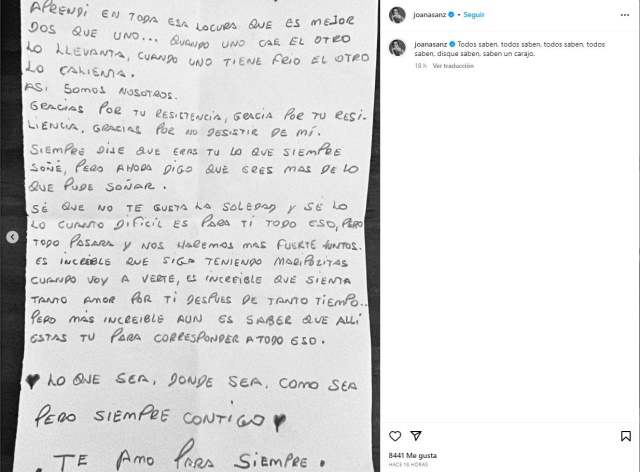 APRENDÍ EN TODA ESA LOCURA QUE ES MEJOR
DOS QUE UNO... QUANDO UNO CAE EL OTRO
LO LLEVANTA, CUANDO UNO TIENE FRIO EL OTRO
LO CALIENTA.
ASI SOMOS NOSOTROS.
GRACIAS POR TU RESISTENCIA, GRACIA POR TU RESI-
LIENCIA, GRACIAS POR NO DESISTIR DE MÍ.
SIEMPRE DIJE QUE ERAS TU LO QUE SIEMPRE
SOÑÉ, PERO AHORA DIGO QUE ERES MAS DE LO
QUE PUDE SOÑAR.
SÉ QUE NO TE GUSTA LA SOLEDAD Y SÉ LO
LO CUANTO DIFICIL ES PARA TI TODO ESO, PERO
TODO PASARA Y NOS HAREMOS MAS FUERTE JUNTOS.
ES INCREIBLE QUE SIGA TENIENDO MARIPOZITAS
CUANDO VOY A VERTE, ES INCREIBLE QUE SIENTA
TANTO AMOR POR TI DESPUES DE TANTO TIEMPO..
PERO MÁS INCREIBLE AUN ES SABER QUE ALLÍ
ESTAS TU PARA CORRESPONDER A TODO ESO.
♥ LO QUE SEA, DONDE SEA, COMO SEA
PERO SIEMPRE CONTIGO ♥
TE AMO PARA SIEMPRE.
joanasanz • Seguir
joanasanz Todos saben, todos saben, todos saben, todos
saben, disque saben, saben un carajo.
18 h Ver traducción
8441 Me gusta
HACE 18 HORAS